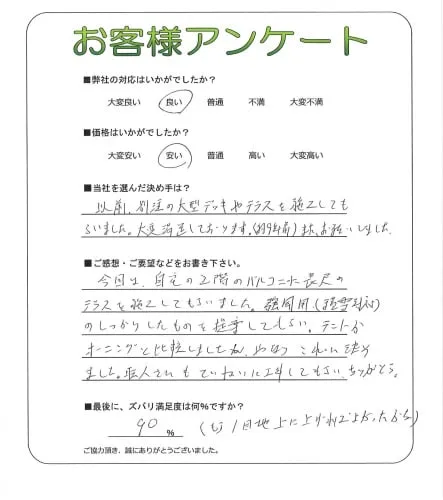 お客様アンケート
■弊社の対応はいかがでしたか？
大変良い 良い 普通 不満 大変不満
■価格はいかがでしたか？
大変安い 安い 普通 高い 大変高い
■当社を選んだ決め手は？
以前、別注の大型デッキやテラスを施工しても
らいました。大変満足しております。(約9年前)また、お願いしました。
■ご感想・ご要望などをお書き下さい。
今回は、自宅の2階のバルコニーに長尺の
テラスを施工してもらいました。強風用(積雪対応)
のしっかりしたものを提案してもらい、テントか
オーニングと比較しましたが、やはり これに決め
ました。職人さんも ていねいに工事してもらい、ありがとう。
■最後に、ズバリ満足度は何％ですか？
90 % (もう1日地上に上がれば
ご協力頂き、誠にありがとうございました。